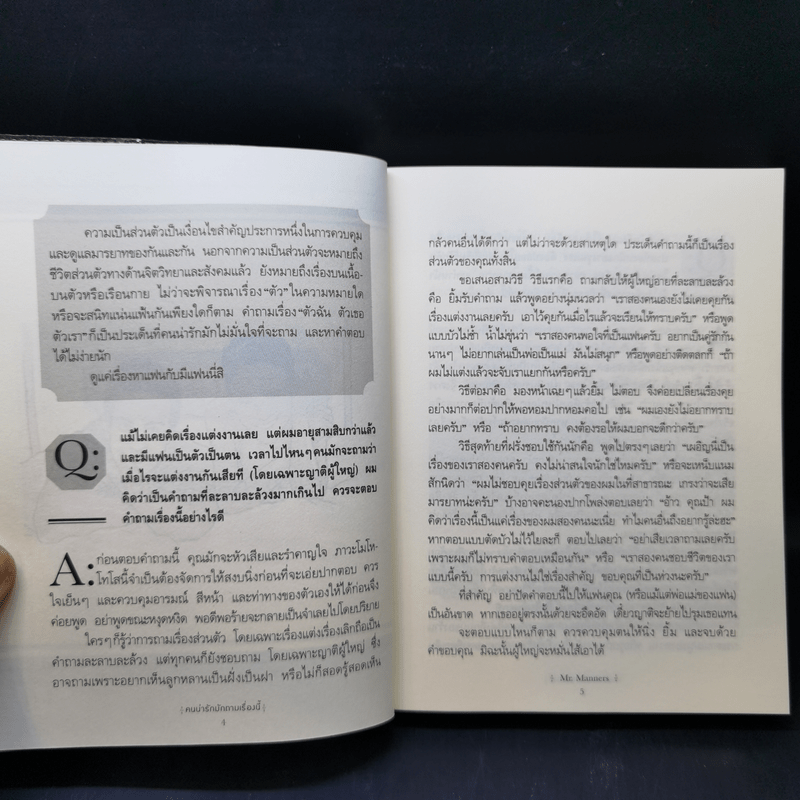 ความเป็นส่วนตัวเป็นเงื่อนไขสำคัญประการหนึ่งในการควบคุม
และดูแลมารยาทของกันและกัน นอกจากความเป็นส่วนตัวจะหมายถึง
ชีวิตส่วนตัวทางด้านจิตวิทยาและสังคมแล้ว ยังหมายถึงเรื่องบนเนื้อ-
บนตัวหรือเรือนกาย ไม่ว่าจะพิจารณาเรื่อง "ตัว" ในความหมายใด
หรือจะสนิทแนบแฟ้นกันเพียงใดก็ตาม คำถามเรื่อง "ตัวฉัน ตัวเธอ
ตัวเรา" ก็เป็นประเด็นที่คนน่ารักมักไม่มั่นใจที่จะถาม และหาคำตอบ
ได้ไม่ง่ายนัก
ดูแค่เรื่องหาแฟนกับมีแฟนนี่สิ
Q: แม้ไม่เคยคิดเรื่องแต่งงานเลย แต่ผมอายุสามสิบกว่าแล้ว
และมีแฟนเป็นตัวเป็นตน เวลาไปไหนๆ คนมักจะถามว่า
เมื่อไรจะแต่งงานกันเสียที (โดยเฉพาะญาติผู้ใหญ่) ผม
คิดว่าเป็นคำถามที่ละลาบละล้วงมากเกินไป ควรจะตอบ
คำถามเรื่องนี้อย่างไรดี
A: ก่อนตอบคำถามนี้ คุณมักจะหัวเสียและรำคาญใจ ภาวะโมโห-
โทโสนี้จำเป็นต้องจัดการให้สงบนิ่งก่อนที่จะเอ่ยปากตอบ ควร
ใจเย็นๆ และควบคุมอารมณ์ สีหน้า และท่าทางของตัวเองให้ได้ก่อนจึง
ค่อยพูด อย่าพูดขณะหงุดหงิด พอดีพอร้ายจะกลายเป็นจำเลยไปโดยปริยาย
ใครๆ ก็รู้ว่าการถามเรื่องส่วนตัว โดยเฉพาะเรื่องแต่งเรื่องเลิกถือเป็น
คำถามละลาบละล้วง แต่ทุกคนก็ยังชอบถาม โดยเฉพาะญาติผู้ใหญ่ ซึ่ง
อาจถามเพราะอยากเห็นลูกหลานเป็นฝั่งเป็นฝา หรือไม่ก็สอดรู้สอดเห็น
| คนน่ารักมักถามเรื่องนี้ |
4
กลัวคนอื่นได้ดีกว่า แต่ไม่ว่าจะด้วยสาเหตุใด ประเด็นคำถามนี้ก็เป็นเรื่อง
ส่วนตัวของคุณทั้งสิ้น
ขอเสนอสามวิธี วิธีแรกคือ ถามกลับให้ผู้ใหญ่อายที่ละลาบละล้วง
คือ ยิ้มรับคำถาม แล้วพูดอย่างนุ่มนวลว่า "เราสองคนเองยังไม่เคยคุยกัน
เรื่องแต่งงานเลยครับ เอาไว้คุยกันเมื่อไรแล้วจะเรียนให้ทราบครับ" หรือพูด
แบบบัวไม่ช้ำ น้ำไม่ขุ่นว่า "เราสองคนพอใจที่เป็นแฟนครับ อยากเป็นคู่รักกัน
นานๆ ไม่อยากเล่นเป็นพ่อเป็นแม่ มันไม่สนุก" หรือพูดอย่างติดตลกก็ "ถ้า
ผมไม่แต่งแล้วจะจับเราแยกกันหรือครับ"
วิธีต่อมาคือ มองหน้าเฉยๆ แล้วยิ้ม ไม่ตอบ จึงค่อยเปลี่ยนเรื่องคุย
อย่างมากก็ต่อปากให้พอหอมปากหอมคอไป เช่น "ผมเองยังไม่อยากทราบ
เลยครับ" หรือ "ถ้าอยากทราบ คงต้องรอให้ผมบอกจะดีกว่าครับ"
วิธีสุดท้ายที่ฝรั่งชอบใช้กันนักคือ พูดไปตรงๆ เลยว่า "เผอิญนี่เป็น
เรื่องของเราสองคนครับ คงไม่น่าสนใจนักใช่ไหมครับ" หรือจะเหน็บแนม
สักนิดว่า "ผมไม่ชอบคุยเรื่องส่วนตัวของผมในที่สาธารณะ เกรงว่าจะเสีย
มารยาทน่ะครับ" บ้างอาจจะนอกปากโพล่งตอบเลยว่า "อ้าว คุณป้า ผม
คิดว่าเรื่องนี้เป็นแค่เรื่องของผมสองคนนะเนี่ย ทำไมคนอื่นถึงอยากรู้ล่ะฮะ"
หากตอบแบบตัดบัวไม่ไว้ใยละก็ ตอบไปเลยว่า "อย่าเสียเวลาถามเลยครับ
เพราะผมก็ไม่ทราบคำตอบเหมือนกัน" หรือ "เราสองคนชอบชีวิตของเรา
แบบนี้ครับ การแต่งงานไม่ใช่เรื่องสำคัญ ขอบคุณที่เป็นห่วงนะครับ"
ที่สำคัญ อย่าปัดคำตอบนี้ไปให้แฟนคุณ (หรือแม้แต่พ่อแม่ของแฟน)
เป็นอันขาด หากเธออยู่ตรงนั้นด้วยจะอึดอัด เดี๋ยวญาติจะย้ายไปรุมเธอแทน
จะตอบแบบไหนก็ตาม ควรควบคุมตนให้นิ่ง ยิ้ม และจบด้วย
คำขอบคุณ มิฉะนั้นผู้ใหญ่จะหมั่นไส้เอาได้
| Mr. Manners |
5